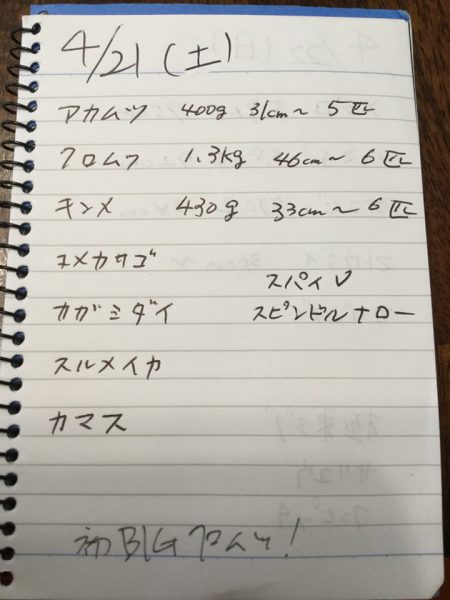 4/21(土)
アカムツ 400g 31cm〜 5匹
クロムツ 1.3kg 46cm〜 6匹
キンメ 430g 33cm〜 6匹
ユメカサゴ
スパイV
カガミダイ スピンドルナロー
スルメイカ
カマス
初BIGクロムツ!